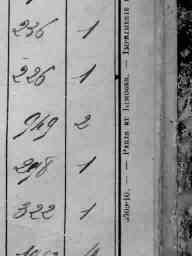 236 1
226 1
949 2
298 1
322 1
PARIS ET LIMOGES. — IMPRIMERIE